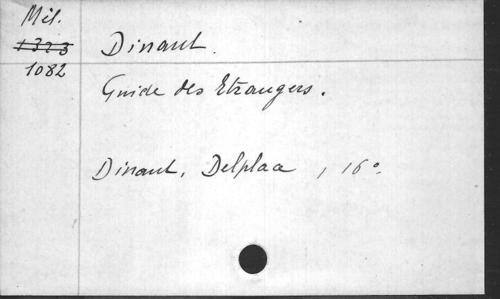 Mil.
1323
1082
Dinant.
Guide des Etrangers.
Dinant, Delplaa , 16°.